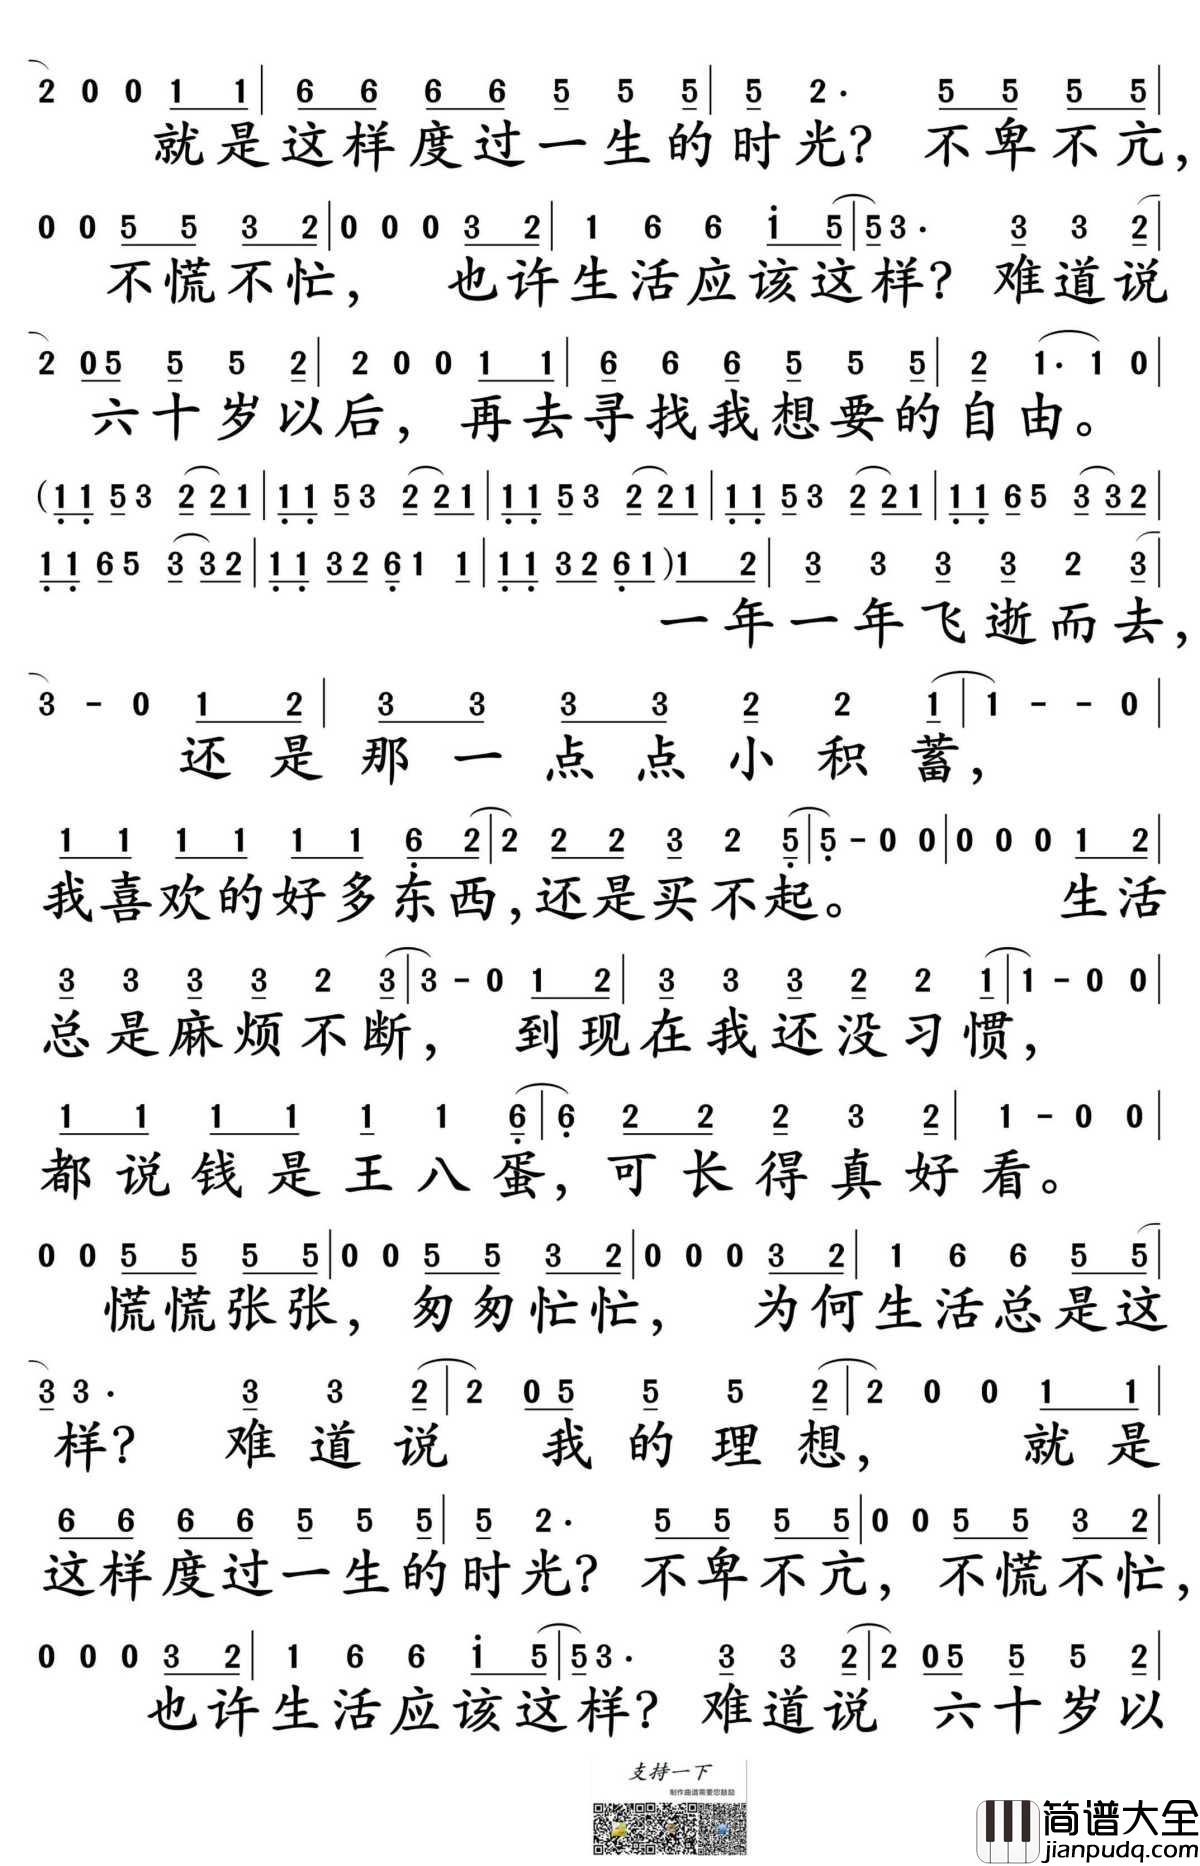 2 0 0 1 1 | 6 6 6 6 5 5 5 | 5 2 · 5 5 5 5 |
就是这样度过一生的时光？不卑不亢，
0 0 5 5 3 2 | 0 0 0 3 2 | 1 6 6 i 5 | 5 3 · 3 3 2 |
不慌不忙，也许生活应该这样？难道说
2 0 5 5 5 2 | 2 0 0 1 1 | 6 6 6 5 5 5 | 2 1 · 1 0 |
六十岁以后，再去寻找我想要的自由。
( 1 1 5 3 2 2 1 | 1 1 5 3 2 2 1 | 1 1 5 3 2 2 1 | 1 1 5 3 2 2 1 | 1 1 6 5 3 3 2 |
1 1 6 5 3 3 2 | 1 1 3 2 6 1 1 | 1 1 3 2 6 1 ) 1 2 | 3 3 3 3 2 3 |
一年一年飞逝而去，
3 - 0 1 2 | 3 3 3 3 2 2 1 | 1 - - 0 |
还是那一点点小积蓄，
1 1 1 1 1 1 6 2 | 2 2 2 3 2 5 | 5 - 0 0 | 0 0 0 1 2 |
我喜欢的好多东西，还是买不起。生活
3 3 3 3 2 3 | 3 - 0 1 2 | 3 3 3 2 2 1 | 1 - 0 0 |
总是麻烦不断，到现在我还没习惯，
1 1 1 1 1 1 6 | 6 2 2 2 3 2 | 1 - 0 0 |
都说钱是王八蛋，可长得真好看。
0 0 5 5 5 5 | 0 0 5 5 3 2 | 0 0 0 3 2 | 1 6 6 5 5 |
慌慌张张，匆匆忙忙，为何生活总是这
3 3 · 3 3 2 | 2 0 5 5 5 2 | 2 0 0 1 1 |
样？难道说我的理想，就是
6 6 6 6 5 5 5 | 5 2 · 5 5 5 5 | 0 0 5 5 3 2 |
这样度过一生的时光？不卑不亢，不慌不忙，
0 0 0 3 2 | 1 6 6 i 5 | 5 3 · 3 3 2 | 2 0 5 5 5 2 |
也许生活应该这样？难道说六十岁以
支持一下
制作曲谱需要您鼓励
简谱大全
jianpudq.com